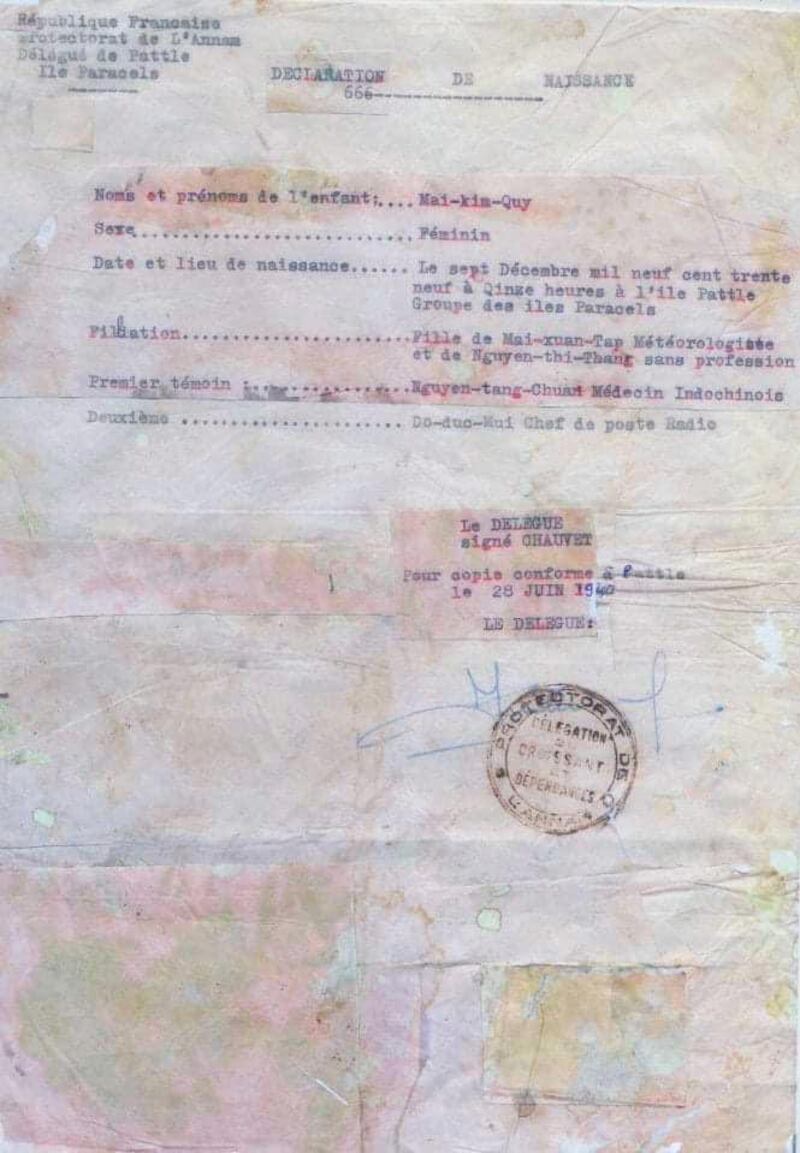 République Francaise
Protectorat de L'Annam
Délégué de Pattle
Ile Paracels
DECLARATION DE NAISSANCE
666-----------------------
Noms et prénoms de l'enfant:.... Mai-kim-Quy
Sexe............................ Féminin
Date et lieu de naissance...... Le sept Décembre mil neuf cent trente
neuf à Qinze heures à l'ile Pattle
Groupe des iles Paracels
Filiation.......................Fille de Mai-xuan-Tap Météorologiste
et de Nguyen-thi-Thang sans profession
Premier témoin :................Nguyen-tang-Chuan Médecin Indochinois
Deuxième ...................... Do-duc-Mui Chef de poste Radio
Le DELEGUE
signé CHAUVET
Pour copie conforme à Pattle
le 28 JUIN 1940
LE DELEGUE:
PROTECTORAT DE L'ANNAM
DÉLÉGATION
DU
CROISSANT
ET
DÉPENDANCES